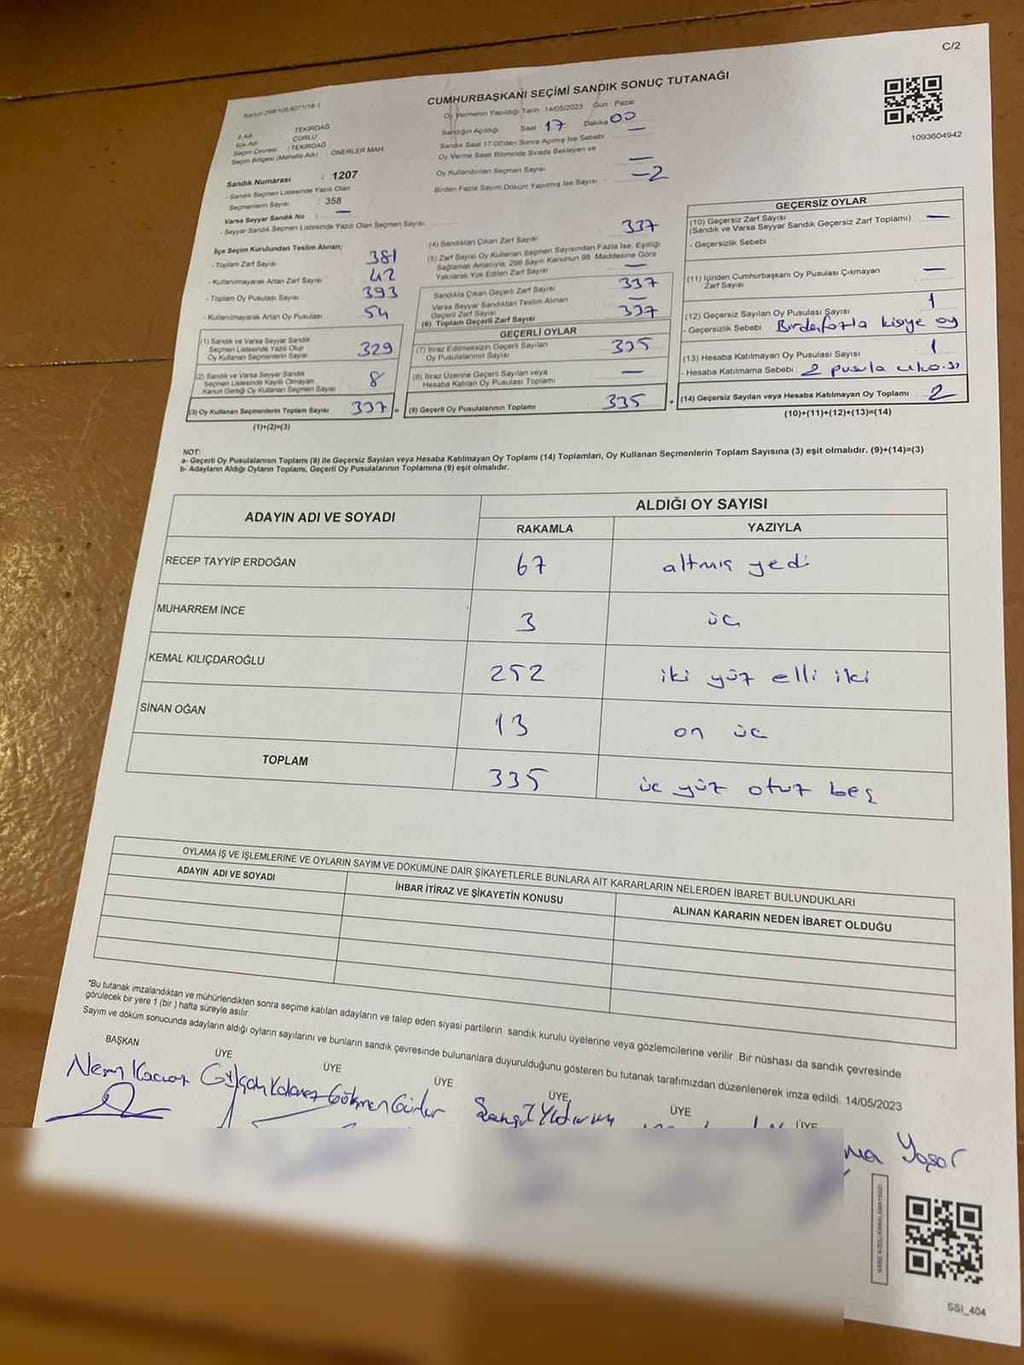 C/2
CUMHURBAŞKANI SEÇİMİ SANDIK SONUÇ TUTANAĞI
1093604942
Oy Vermenin Yapıldığı Tarih 14/05/2023 Gün : Pazar
Sandığın Açıldığı Saat 17 Dakika 00
Sandık Saat 17.00'den Sonra Açılmış İse Sebebi —
Oy Verme Saati Bitiminde Sırada Bekleyen ve
Oy Kullandırılan Seçmen Sayısı —
Birden Fazla Sayım Döküm Yapılmış İse Sayısı : —2
İl Adı : TEKİRDAĞ
İlçe Adı : ÇORLU
Seçim Çevresi : TEKİRDAĞ
Seçim Bölgesi (Mahalle Adı) : ÖNERLER MAH
Sandık Numarası : 1207
- Sandık Seçmen Listesinde Yazılı Olan
Seçmenlerin Sayısı : 358
Varsa Seyyar Sandık No : —
- Seyyar Sandık Seçmen Listesinde Yazılı Olan Seçmen Sayısı
İlçe Seçim Kurulundan Teslim Alınan;
- Toplam Zarf Sayısı 381
- Kullanılmayarak Artan Zarf Sayısı 42
- Toplam Oy Pusulası Sayısı 393
- Kullanılmayarak Artan Oy Pusulası 54
(1) Sandık ve Varsa Seyyar Sandık
Seçmen Listesinde Yazılı Olup
Oy Kullanan Seçmenlerin Sayısı 329
(2) Sandık ve Varsa Seyyar Sandık
Seçmen Listesinde Kayıtlı Olmayan
Kanun Gereği Oy Kullanan Seçmen Sayısı 8
(3) Oy Kullanan Seçmenlerin Toplam Sayısı 337 =
(1)+(2)=(3)
(4) Sandıktan Çıkan Zarf Sayısı 337
(5) Zarf Sayısı Oy Kullanan Seçmen Sayısından Fazla İse, Eşitliği
Sağlamak Amacıyla, 298 Sayılı Kanunun 98. Maddesine Göre
Yakılarak Yok Edilen Zarf Sayısı —
Sandıkta Çıkan Geçerli Zarf Sayısı 337
Varsa Seyyar Sandıktan Teslim Alınan
Geçerli Zarf Sayısı —
(6) Toplam Geçerli Zarf Sayısı 337
GEÇERLİ OYLAR
(7) İtiraz Edilmeksizin Geçerli Sayılan
Oy Pusulalarının Sayısı 335
(8) İtiraz Üzerine Geçerli Sayılan veya
Hesaba Katılan Oy Pusulası Toplamı —
(9) Geçerli Oy Pusulalarının Toplamı 335 +
GEÇERSİZ OYLAR
(10) Geçersiz Zarf Sayısı
(Sandık ve Varsa Seyyar Sandık Geçersiz Zarf Toplamı) —
- Geçersizlik Sebebi
(11) İçinden Cumhurbaşkanı Oy Pusulası Çıkmayan
Zarf Sayısı —
(12) Geçersiz Sayılan Oy Pusulası Sayısı 1
- Geçersizlik Sebebi : Birden fazla kişiye oy
(13) Hesaba Katılmayan Oy Pusulası Sayısı 1
- Hesaba Katılmama Sebebi : 2 pusula
(14) Geçersiz Sayılan veya Hesaba Katılmayan Oy Toplamı 2
(10)+(11)+(12)+(13)=(14)
NOT:
a- Geçerli Oy Pusulalarının Toplamı (9) ile Geçersiz Sayılan veya Hesaba Katılmayan Oy Toplamı (14) Toplamları, Oy Kullanan Seçmenlerin Toplam Sayısına (3) eşit olmalıdır. (9)+(14)=(3)
b- Adayların Aldığı Oyların Toplamı, Geçerli Oy Pusulalarının Toplamına (9) eşit olmalıdır.
ADAYIN ADI VE SOYADI
ALDIĞI OY SAYISI
RAKAMLA YAZIYLA
RECEP TAYYİP ERDOĞAN 67 altmış yedi
MUHARREM İNCE 3 üç
KEMAL KILIÇDAROĞLU 252 iki yüz elli iki
SİNAN OĞAN 13 on üç
TOPLAM 335 üç yüz otuz beş
OYLAMA İŞ VE İŞLEMLERİNE VE OYLARIN SAYIM VE DÖKÜMÜNE DAİR ŞİKAYETLERLE BUNLARA AİT KARARLARIN NELERDEN İBARET BULUNDUKLARI
ADAYIN ADI VE SOYADI İHBAR İTİRAZ VE ŞİKAYETİN KONUSU ALINAN KARARIN NEDEN İBARET OLDUĞU
*Bu tutanak imzalandıktan ve mühürlendikten sonra seçime katılan adayların ve talep eden siyasi partilerin sandık kurulu üyelerine veya gözlemcilerine verilir. Bir nüshası da sandık çevresinde
görülecek bir yere 1 (bir) hafta süreyle asılır.
Sayım ve döküm sonucunda adayların aldığı oyların sayılarını ve bunların sandık çevresinde bulunanlara duyurulduğunu gösteren bu tutanak tarafımızdan düzenlenerek imza edildi. 14/05/2023
BAŞKAN ÜYE ÜYE ÜYE ÜYE ÜYE ÜYE
Gökmen Gürler Yıldırım Yaşar
SSI_404